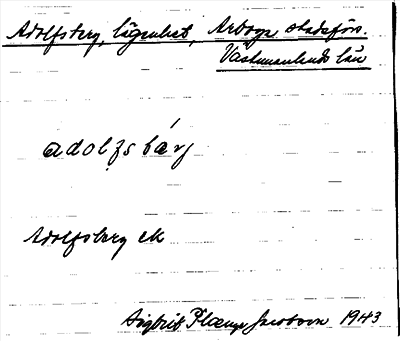 Adolfsberg, lägenhet, Arboga stadsförs.
Västmanlands län
adolfsbärj
Adolfsberg ek
Sigbrit Plænge Jacobson 1943